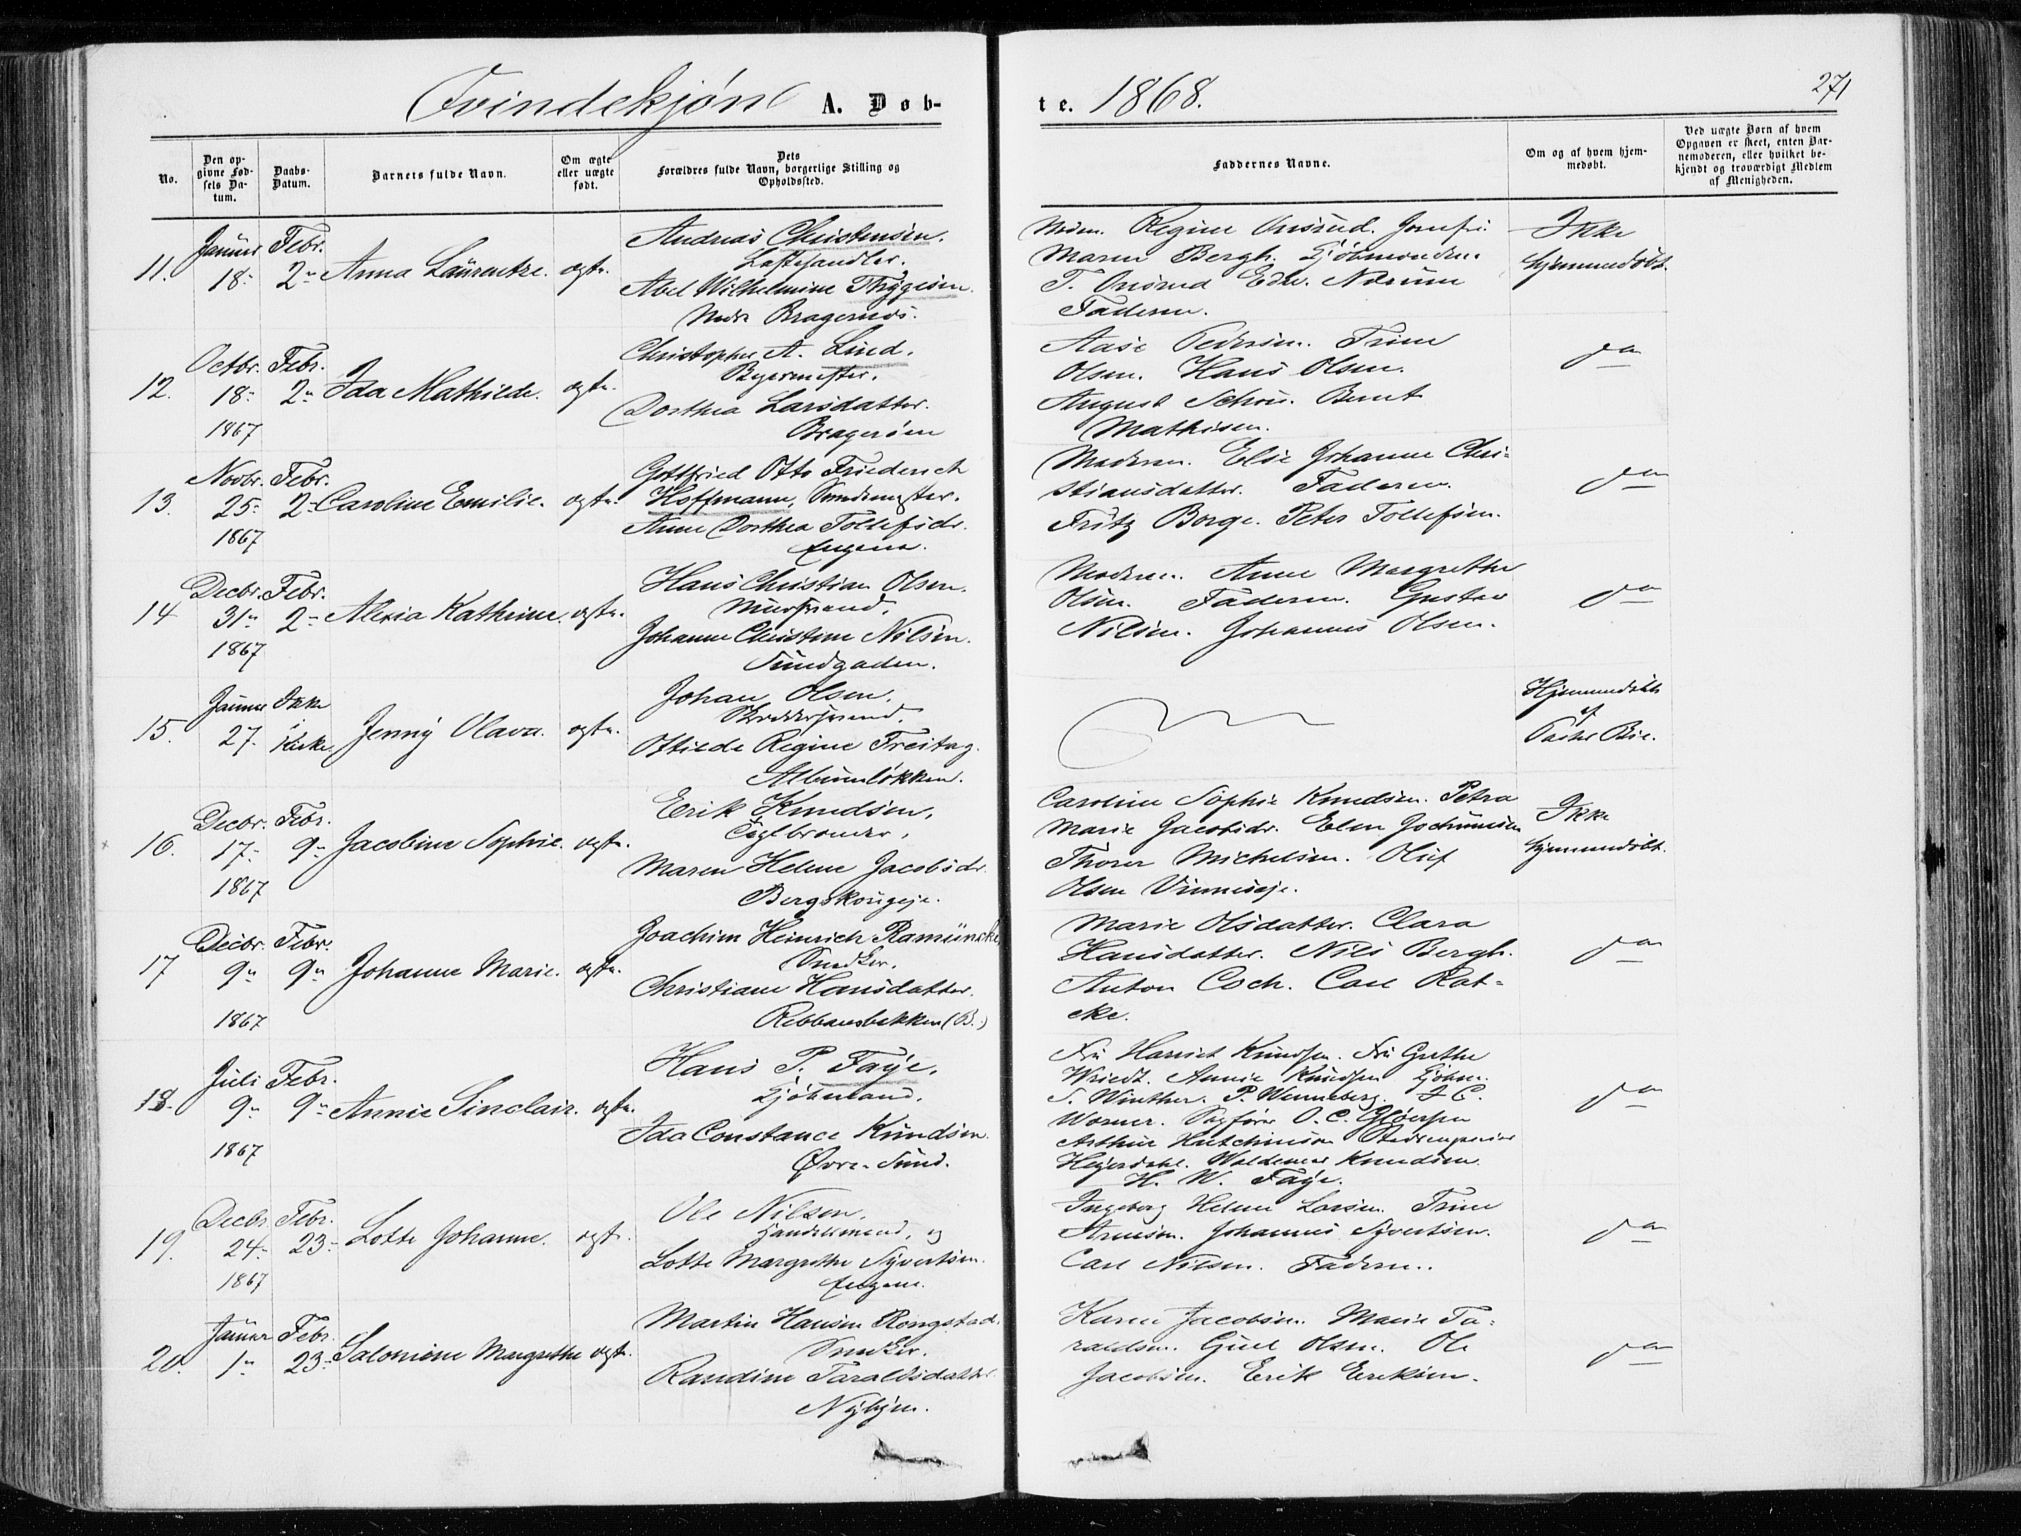 Qvindekjøn A. Døb-
te. 1868.
271
No.
Den op-
givne Fød-
sels Da-
tum.
Daabs-
Datum.
Barnets fulde Navn.
Om ægte
eller uægte
født.
Dets
Forældres fulde Navn, borgerlige Stilling og
Opholdssted.
Faddernes Navne.
Om og af hvem hjem-
medøbt.
Ved uægte Børn af hvem
Opgaven er skeet, enten Bar-
nemoderen, eller hvilket be-
kjendt og troværdigt Medlem
af Menigheden.
11.
Januar
18
Febr.
2
Anna Laurentze.
ægte.
Andreas Christensen.
Abel Wilhelmine Thygesen.
Nedre Bragernæs.
Regine
Maren Bergh.
T.
Faderen.
Ikke
hjemmedøbt.
12.
Octbr.
18
1867
Febr.
2
Ida Mathilde.
ægte.
Christopher A. Lind.
Dorthea Larsdatter.
Bragerøen
Aase Pedersen. Trine
Olsen. Hans Olsen.
August Schou. Bernt
Mathisen.
do
13.
Novbr.
25
1867
Febr.
2
Caroline Emilie.
ægte.
Gottfried Otto Friederich
Hoffmann,
Anne Dorthea Tollefsdr.
Engene.
Moderen. Else Johanne Chri-
stiansdatter. Faderen.
Fritz Borge. Peter Tollefsen.
do
14
Decbr.
31
1867
Febr.
2
Alexia Kathrine.
ægte.
Hans Christian Olsen.
Muursvend.
Johanne Christine Nilsen.
Sundgaden.
Moderen. Anne Margrethe
Olsen. Faderen. Gustav
Nilsen. Johannes Olsen.
do
15.
Januar
27.
Ikke
i
Kirke.
Jenny Olava.
ægte.
Johan Olsen.
Skreddersvend.
Ottilde Regine Freitag.
Albumløkken.
Hjemmedøbt
af
16.
Decbr.
17
1867
Febr.
9
Jacobine Sophie.
ægte.
Erik Knudsen.
Teglbrænder.
Maren Helene Jacobsdr.
Bergskougeje.
Caroline Sophie Knudsen. Petra
Marie Jacobsdr. Elen Jochumsen
Thorer Michelsen. Oluf
Olsen
Ikke
hjemmedøbt.
17
Decbr.
9
1867
Febr.
9
Johanne Marie.
ægte.
Joachim Heinrich
Snedker.
Christiane Hansdatter.
Kebbansbakken (B.)
Marie Olsdatter. Clara
Hansdatter. Nils Bergh.
Anton Coch. Carl Rat-
cke.
do
18.
Juli
9
1867
Febr.
9
Annie Sinclair.
ægte.
Hans P. Faye.
Kjøbmand.
Ida Constance Knudsen.
Øvre-Sund.
Fru Harriet Knudsen. Fru Grethe
Wriedt. Annie Knudsen Kjøbm.
S. Winther. P. Wenneberg. J C.
Worner. Sagfører O. C. Gløersen
Arthur Hutchinson Stadsingeniør
Heyerdahl. Waldemar Knudsen.
H. W. Faye.
do
19.
Decbr.
24
1867
Febr.
23
Lotte Johanne.
ægte.
Ole Nilsen.
Handelsmand, og
Lotte Margrethe Syvertsen.
Engene.
Ingeborg Helene Larsen. Trine
Arnesen. Johannes Syvertsen.
Carl Nilsen. Faderen.
do
20.
Januar
1
Febr.
23
Salomine Margrethe
ægte.
Martin Hansen Rongstad.
Snedker.
Randine Taraldsdatter.
Nybyen.
Karen Jacobsen. Marie Ta-
raldsen. Gull Olsen. Ole
Jacobsen. Erik Eriksen.
do